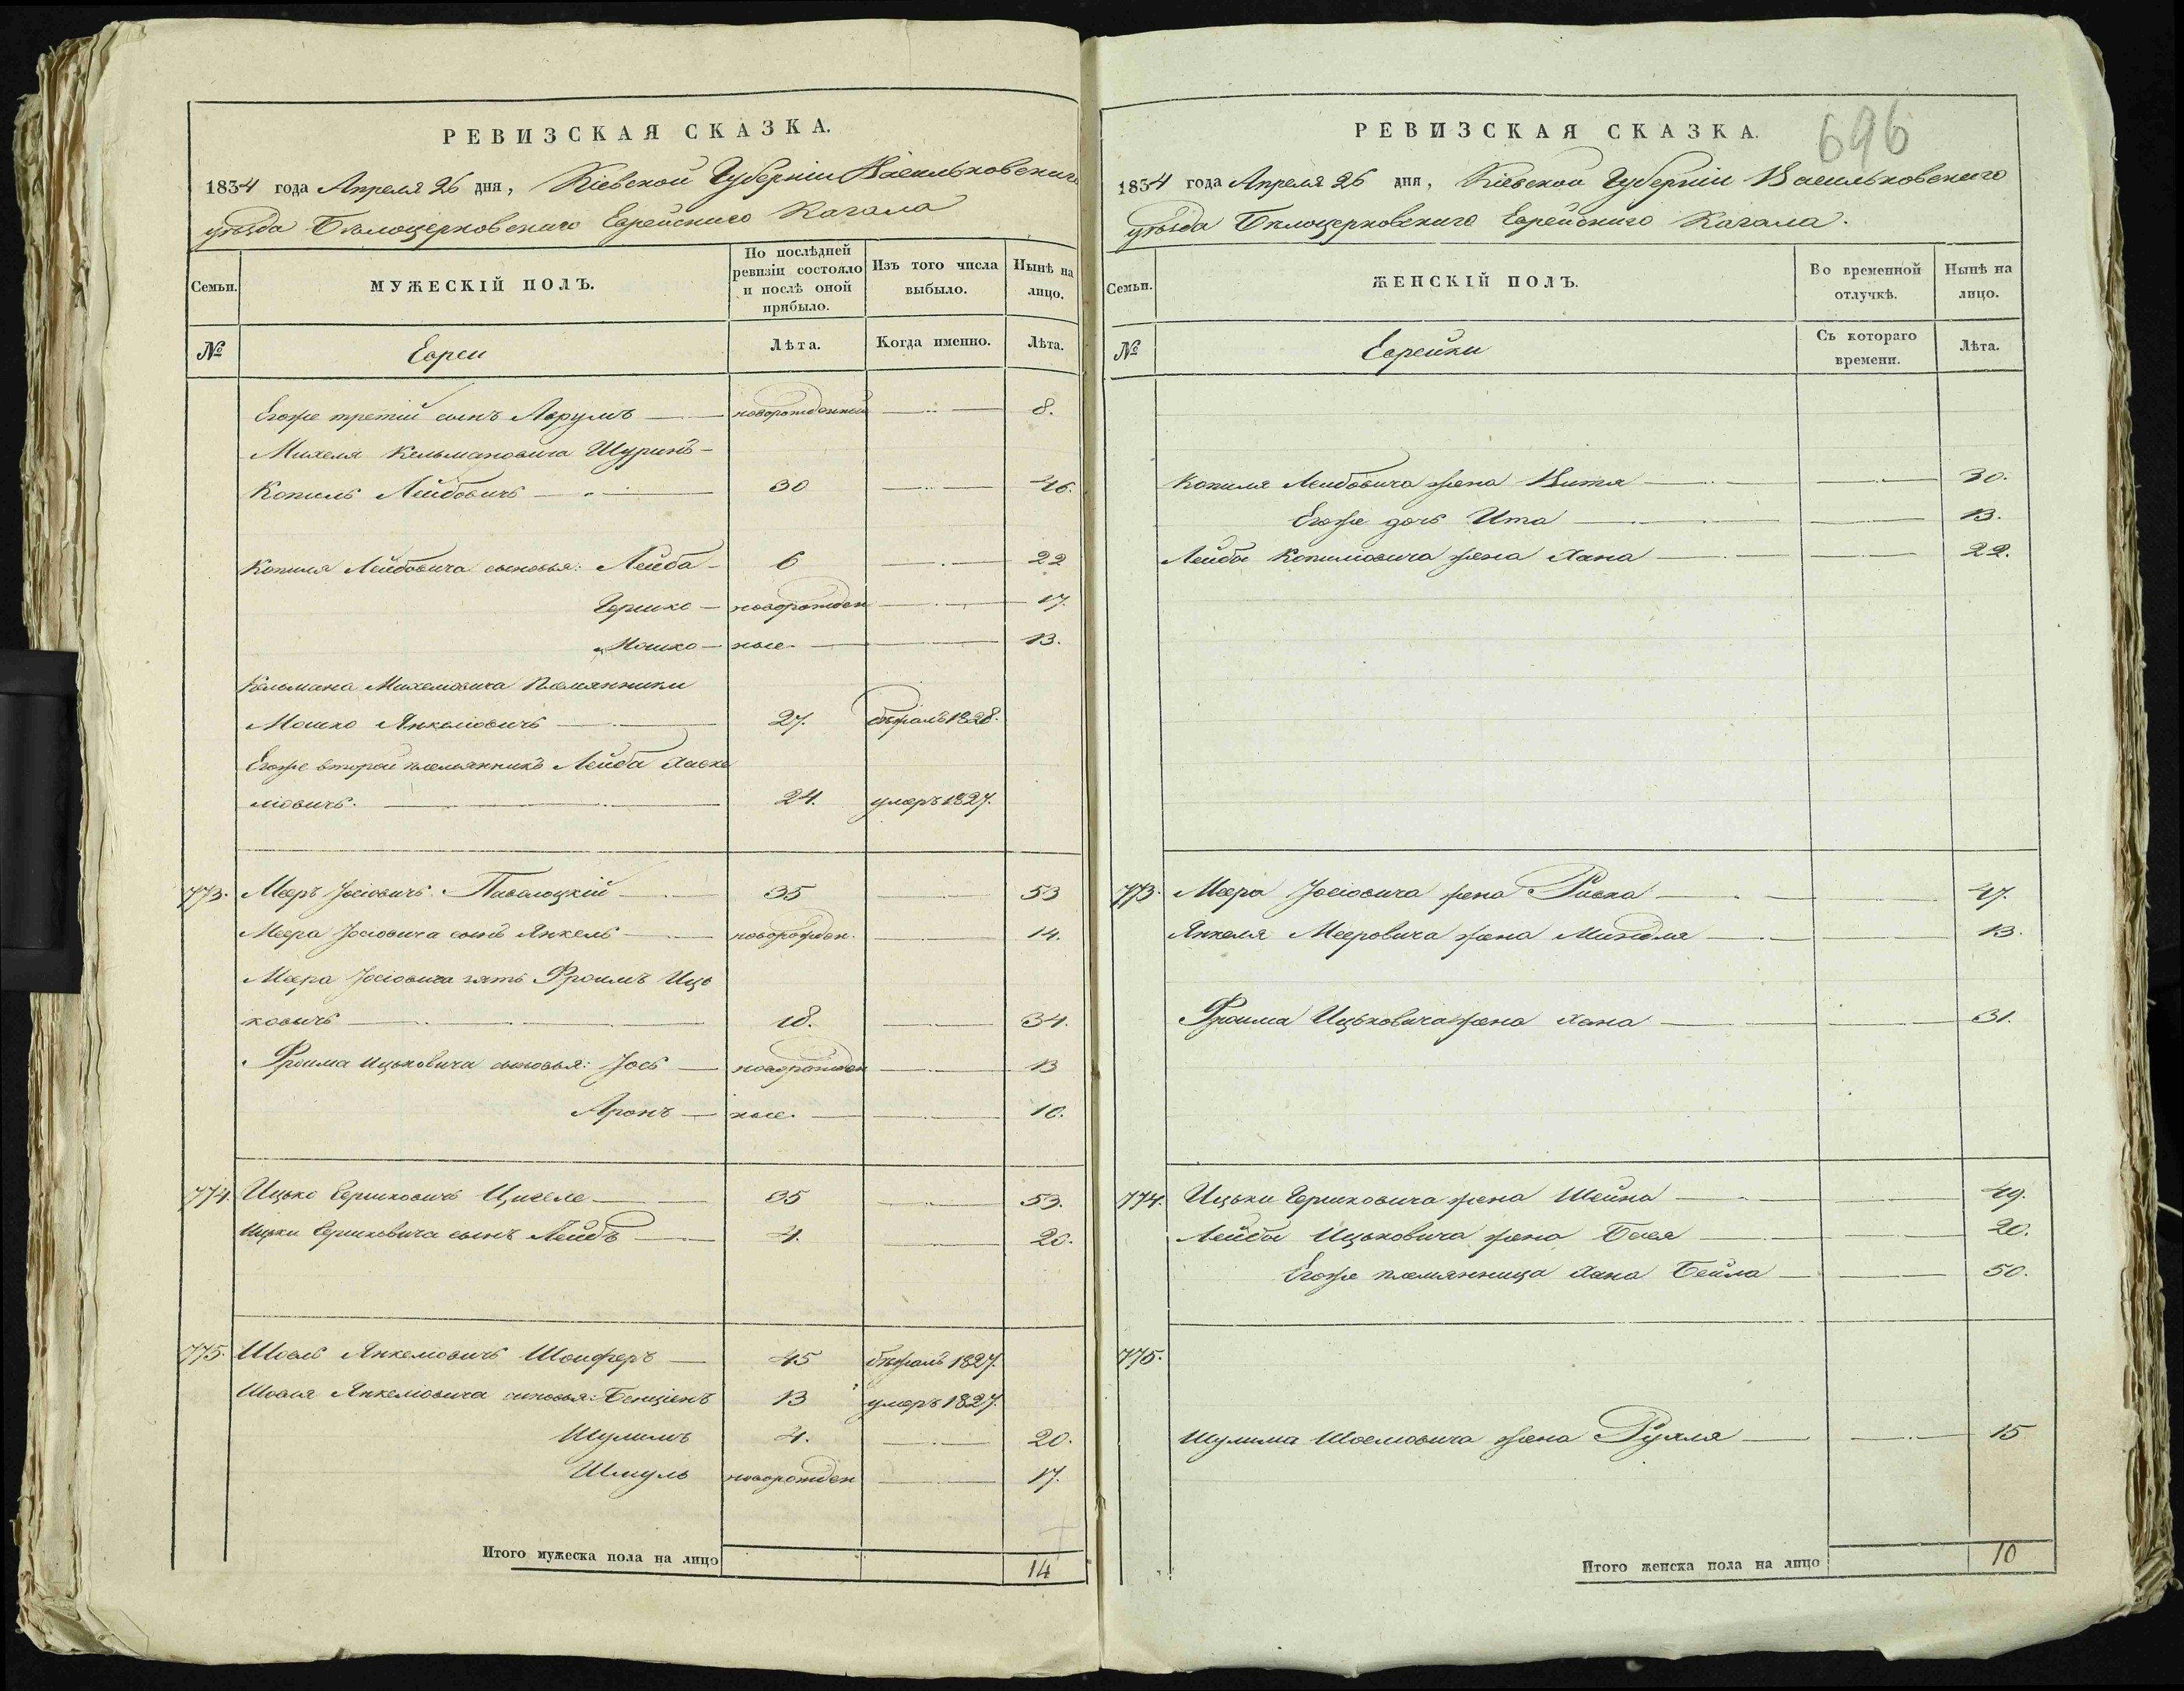 РЕВИЗСКАЯ СКАЗКА.
1834 года Апреля 26 дня, Кіевской Губерніи Васильковскаго
уѣзда Бѣлоцерковскаго Еврейскаго Кагала
Семьи.
МУЖЕСКІЙ ПОЛЪ.
По послѣдней ревизіи состояло и послѣ оной прибыло.
Изъ того числа выбыло.
Нынѣ на лицо.
№
Евреи
Лѣта.
Когда именно.
Лѣта.
Егоже третій сынъ Аврумъ новорожденный 8.
Михеля Кельмановича Шуринъ
Копель Лейбовичъ 30 46.
Копиля Лейбовича сыновья: Лейба 6 22
Гершко новорожден 17.
Мошко ные. 13.
Кельмана Михелювича племянники
Мошко Янкелювичъ 27. бѣжалъ 1828.
Егоже второй племянникъ Лейба Хаске
лювичъ. 24. умеръ 1827.
773. Меръ Іосіовичъ Паволоцкій 35 53
Меера Іосіовича сынъ Янкель новорожден. 14.
Меера Іосіовича зять Фроимъ Иць
ковичъ 18. 34.
Фроима Ицьковича сыновья: Іось новорожден 13
Аронъ ные. 10.
774. Ицько Гершковичъ Цигеле 35 53.
Ицьки Гершковича сынъ Лейбъ 4. 20.
775. Шоель Янкелювичъ Шойферъ 45 бѣжалъ 1827.
Шоеля Янкелювича сыновья: Бенціенъ 13 умеръ 1827.
Шулимъ 4. 20.
Шмуль новорожден 17.
Итого мужеска пола на лицо 14
696
РЕВИЗСКАЯ СКАЗКА.
1834 года Апреля 26 дня, Кіевской Губерніи Васильковскаго
уѣзда Бѣлоцерковскаго Еврейскаго Кагала.
Семьи.
ЖЕНСКІЙ ПОЛЪ.
Во временной отлучкѣ.
Нынѣ на лицо.
№
Еврейки
Съ котораго времени.
Лѣта.
Копиля Лейбовича жена Витя 30.
Егоже дочь Ита 13.
Лейбы Копилювича жена Хана 22.
773. Меера Іосіовича жена Риска 47.
Янкеля Мееровича жена Миндля 13.
Фроима Ицьковича жена Хана 31.
774. Ицьки Гершковича жена Шейна 49.
Лейбы Ицьковича жена Бася 20.
Егоже племянница Хана Бейла 50.
775.
Шулима Шоелювича жена Рухля 15
Итого женска пола на лицо 10